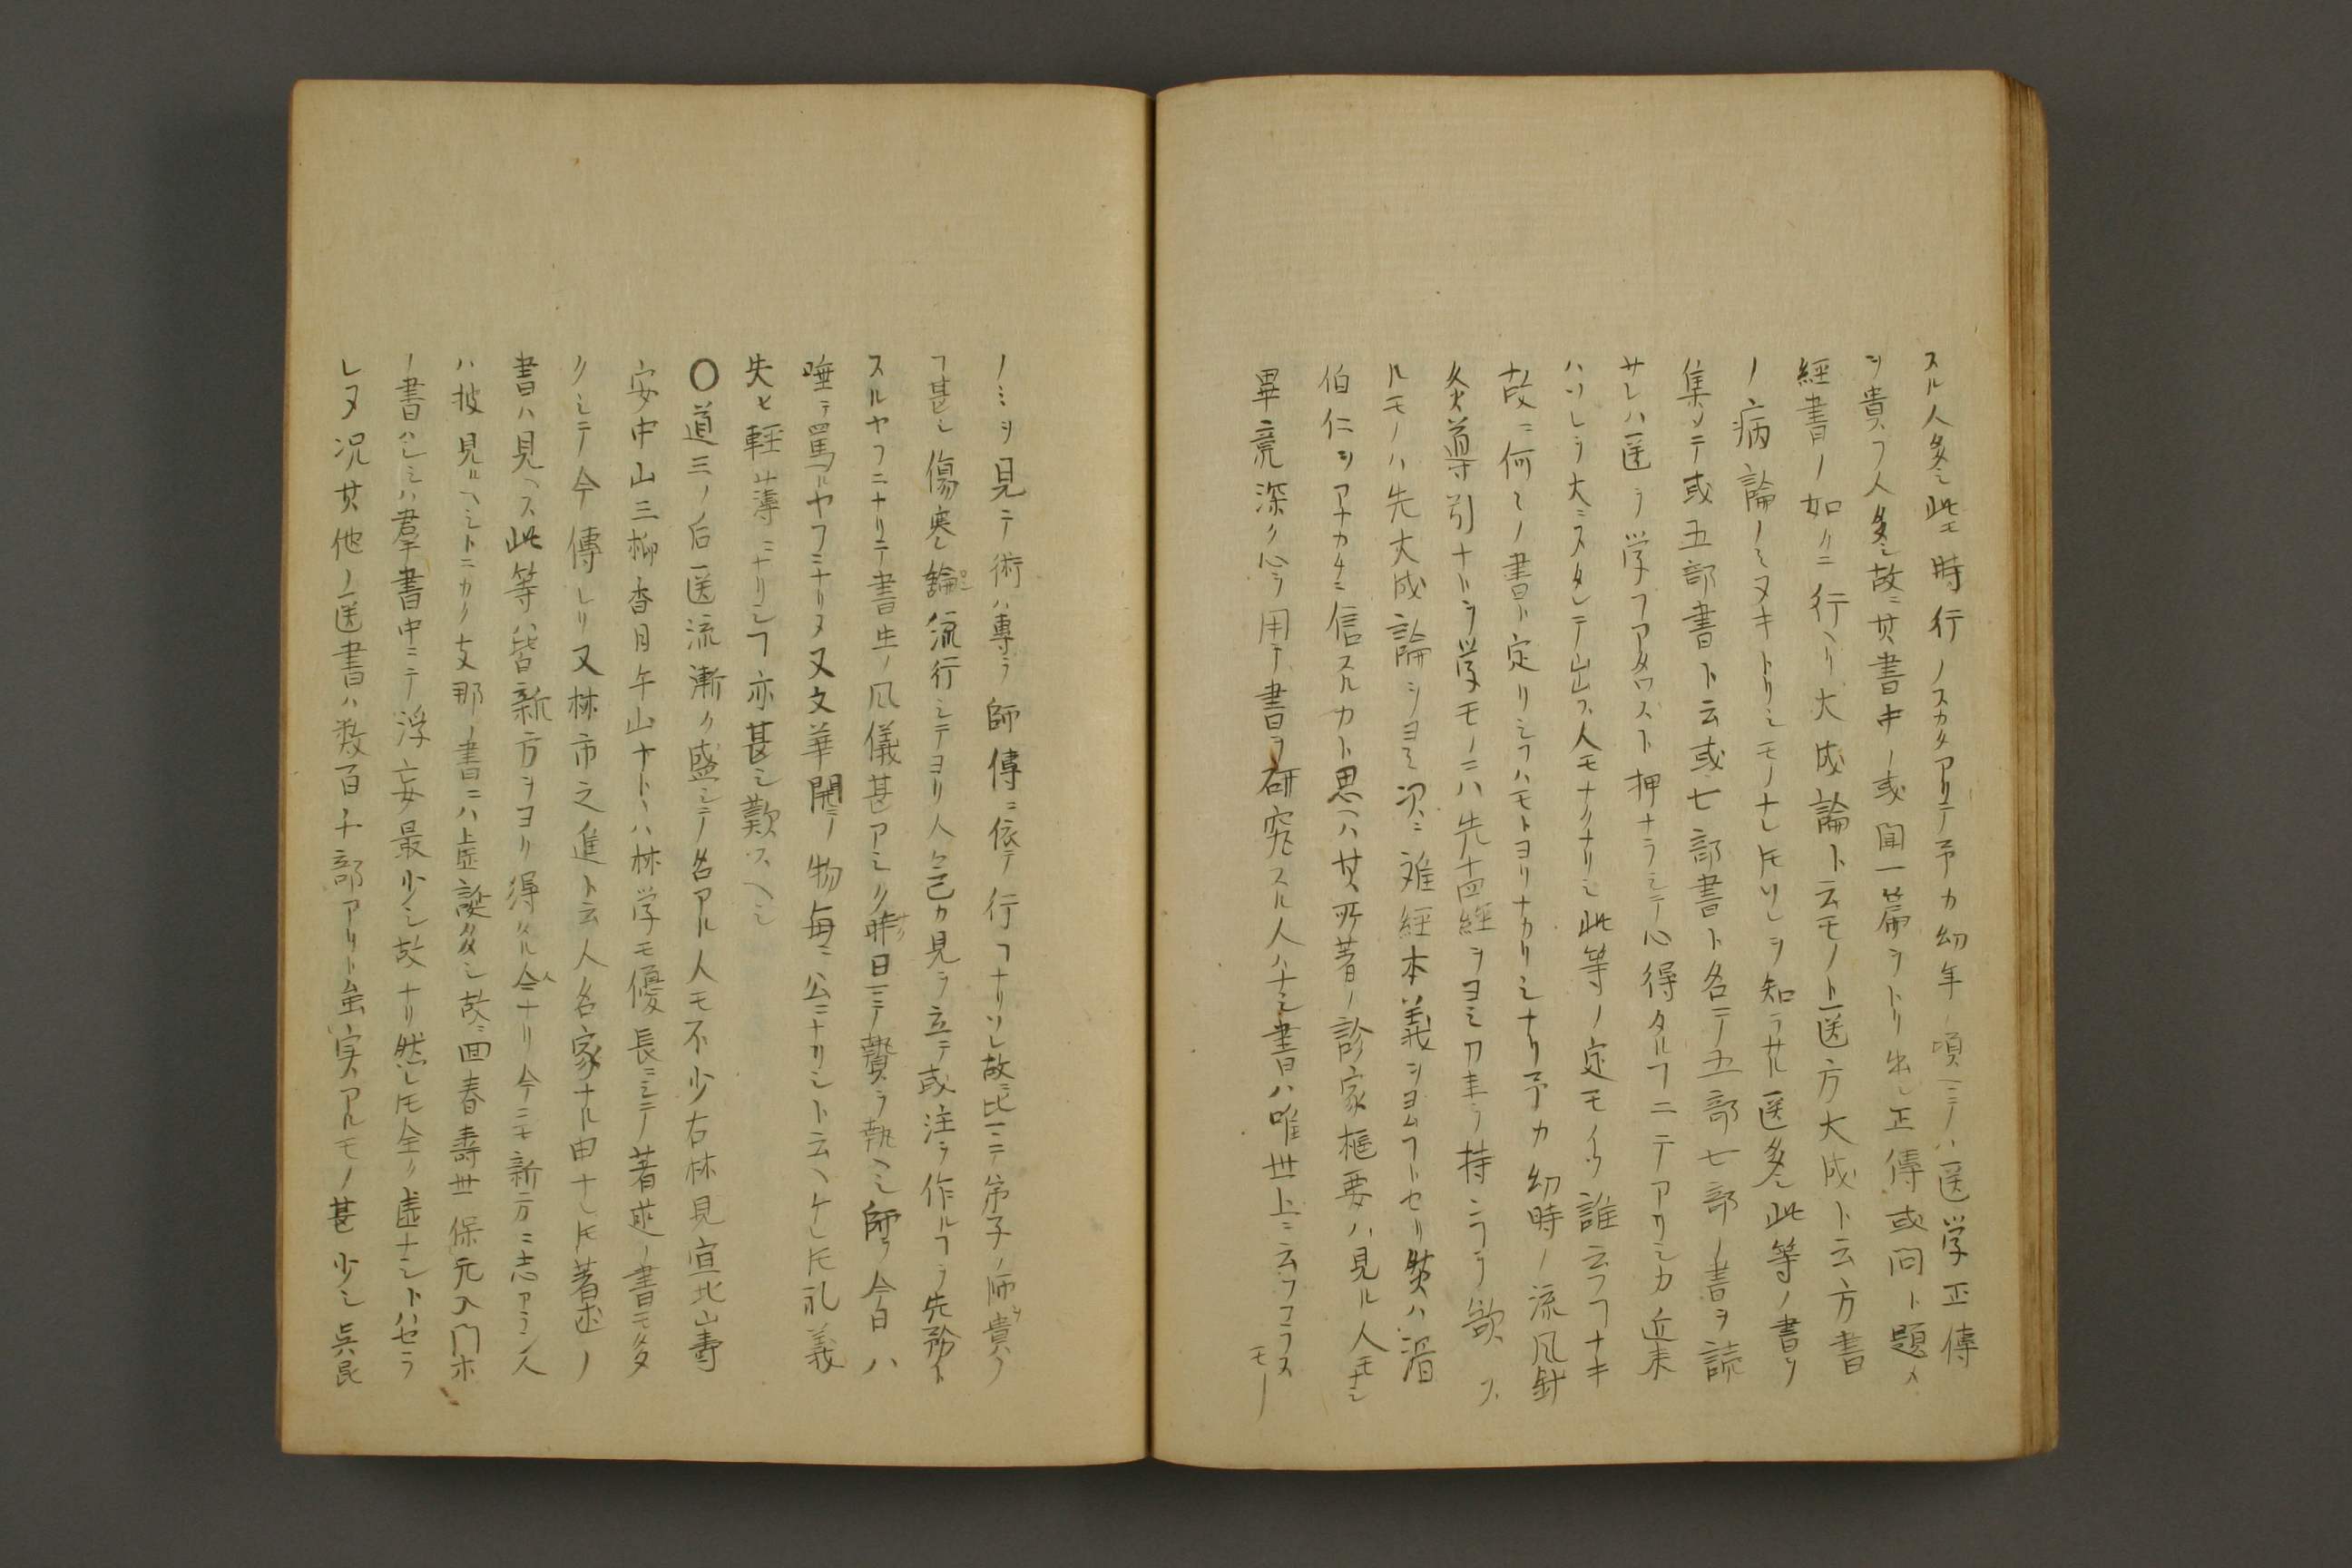 スル人多シ此モ時行ノスカタアリテ予カ幼年ノ頃ニテハ医学正傳
ヲ貴フ人多シ故ニ其書中ノ或問一篇ヲトリ出シ正傳或問ト題メ
經書ノ如クニ行ヘリ大成論ト云モノト医方大成ト云方書
ノ病論ノミヌキトリシモノナレ𪜈ソレヲ知ラサル医多シ此等ノ書ヲ
集メテ或五部書ト云或七部書ト名テ五部七部ノ書ヲ読
サレハ医ヲ学フアタワスト押ナラシテ心得タルヿニテアリシカ近来
ハソレヲ大ニスタレテ出ス人モナクナリシ此等ノ定モイツ誰云フヿナキ
故ニ何レノ書ト定リシヿハモトヨリナカリシナリ予カ幼時ノ流風針
灸導引ナトヲ学モノニハ先十四経ヲヨミ刀圭ヲ持ニヲヲ欲ス
ルモノハ先大成論ヲヨミ次ニ难経本義ヲヨムヿトセリ然ハ滑
伯仁ヲアナカチニ信スルカト思ヘハ其所著ノ診家枢要ハ見ル人モナシ
畢竟深ク心ヲ用テ書ヲ研究スル人ハナシ書ハ唯世上ニ云フコラスモー
ノミヲ見テ術ハ專ラ師傳ニ依テ行フナリソレ故ニ比ニテ弟子ノ師ヲ貴フ
ヿ甚シ傷寒論流行シテヨリ人々己カ見ヲ立テ或注ヲ作ルヿヲ先務ト
スルヤフニナリテ書生ノ風儀甚アシク昨日ニテ贄ヲ執ヘシ師ヲ今日ハ
唾テ罵ルヤフニナリヌ又文華開テ物毎ニ公ニナリシト云ヘケレ𪜈礼義
失ヒ軽薄ニナリシヿ亦甚シ歎スヘシ
〇道三ノ后医流漸ク盛ニテ名アル人モ不少古林見宜北山壽
安中山三柳香月牛山ナトハ林学モ優長ニシテ著述ノ書モ多
クシテ今傳レリ又林市之進ト云人名家ナル由ナレ𪜈著述ノ
書ハ見ヘス此等ハ皆新方ヲヨリ得タル人ナリ今ニモ新方ニ志アラン人
ハ披見ルヘシトニカク支那ノ書ニハ虚誕多シ故ニ回春壽世保元入門ホ
ノ書ハシミハ羣書中ニテ浮妄最少シ故ナリ然レ𪜈全ク虚ナシトハセラ
レヌ况其他ノ医書ハ数百千部アリト𧈧実アルモノ甚少シ呉昆